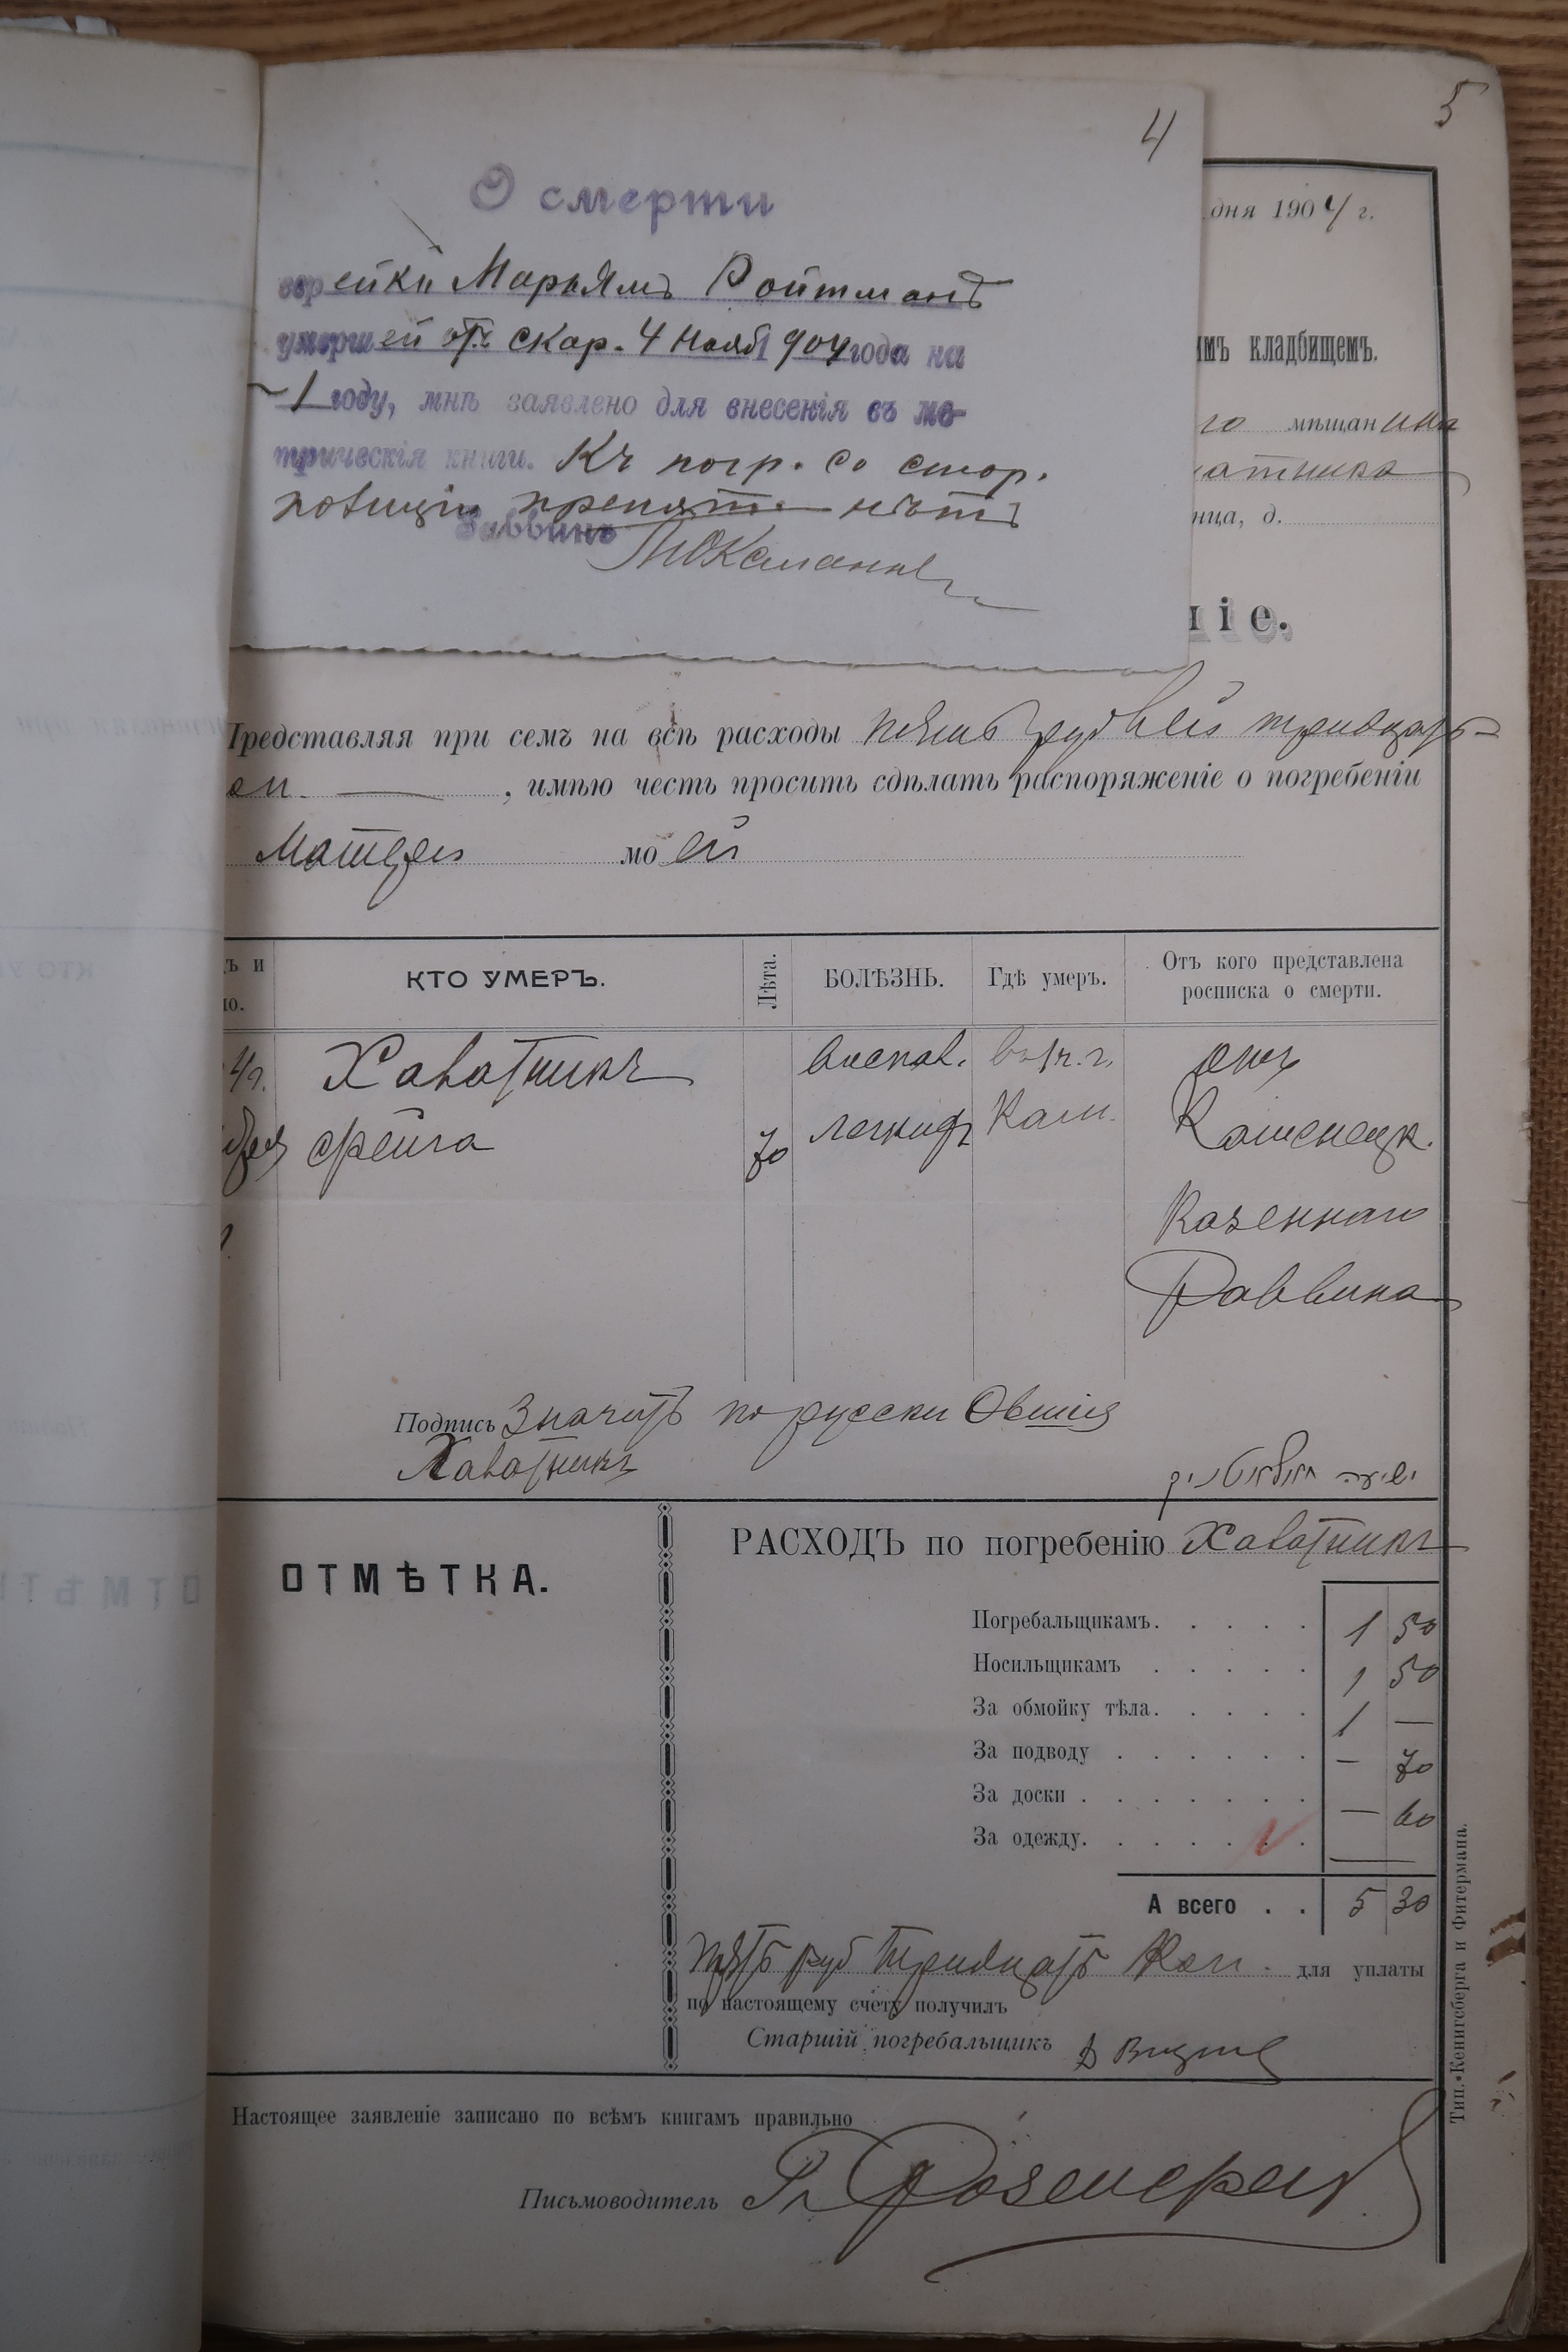 4
5
О смерти
еврейки Марьямъ Ройтманъ
умершей отъ скар. 4 Нояб 1904 года на
1 году, мнѣ заявлено для внесенія въ ме-
трическія книги. Къ погр. со стор.
полиціи препят. нѣтъ
Раввинъ
дня 1904 г.
имъ кладбищемъ.
го мѣщанина
атника
ица, д.
ніе.
Представляя при семъ на всѣ расходы пять рублей тридцать
коп. , имѣю честь просить сдѣлать распоряженіе о погребеніи
Матери моей
ъ и
КТО УМЕРЪ.
Лѣта.
БОЛѢЗНЬ.
Гдѣ умеръ.
Отъ кого представлена
росписка о смерти.
Хаватникъ
Фейга
70
воспал.
легкихъ
Кам.
отъ
Каменецк.
Казеннаго
Раввина
Подпись значитъ по русски Овшія
Хаватникъ
ישיעה חאוואטניק
ОТМѢТКА.
РАСХОДЪ по погребенію Хаватникъ
Погребальщикамъ. 1 50
Носильщикамъ 1 50
За обмойку тѣла. 1 —
За подводу — 70
За доски — 60
За одежду.
А всего 5 30
Пять руб тридцать Коп. для уплаты
по настоящему счету получилъ
Старшій погребальщикъ
Настоящее заявленіе записано по всѣмъ книгамъ правильно
Письмоводитель
Тип. Кенигсберга и Фитермана.